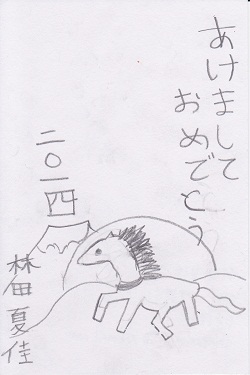 あけまして
おめでとう
二〇一四
林田夏佳